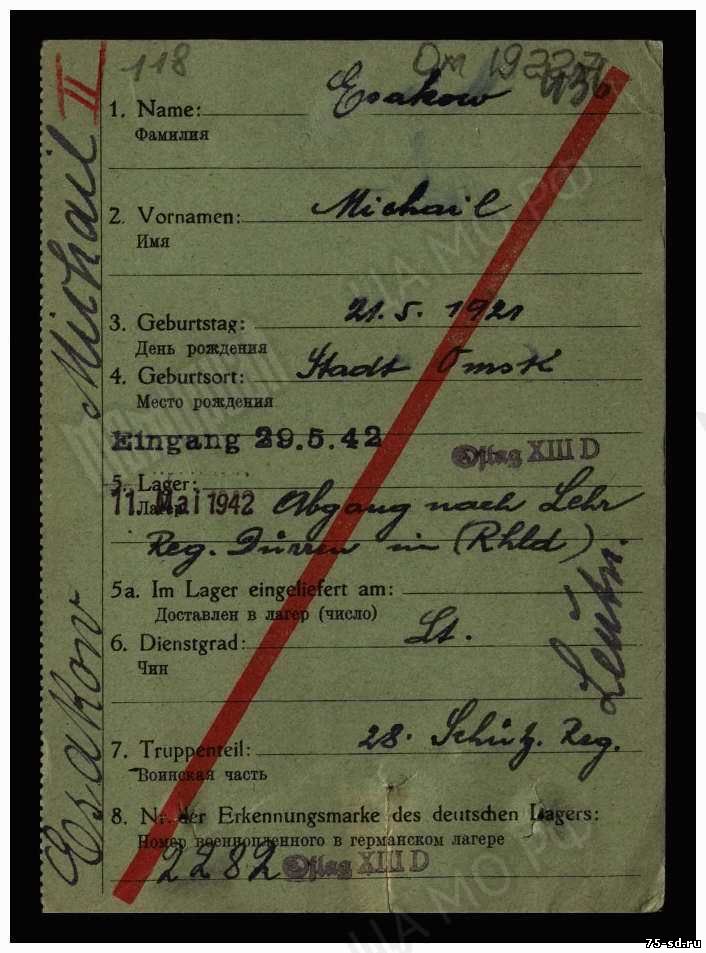 118
1. Name: Esakow
Фамилия
2. Vornamen: Michail
Имя
3. Geburtstag: 21. 5. 1921
День рождения
4. Geburtsort: Stadt Omsk
Место рождения
Eingang 29.5.42
Oflag XIII D
5. Lager:
Лагерь
11. Mai 1942 Abgang nach Lehr
Reg. Dürren in (Rhld)
5a. Im Lager eingeliefert am:
Доставлен в лагер (число)
6. Dienstgrad: Lt.
Чин
7. Truppenteil: 28. Schütz. Reg.
Воинская часть
8. Nr. der Erkennungsmarke des deutschen Lagers:
Номер военнопленного в германском лагере
2282 Oflag XIII D
Esakow Michail II
ЦА МО РФ
ЦА МО РФ
75-sd.ru